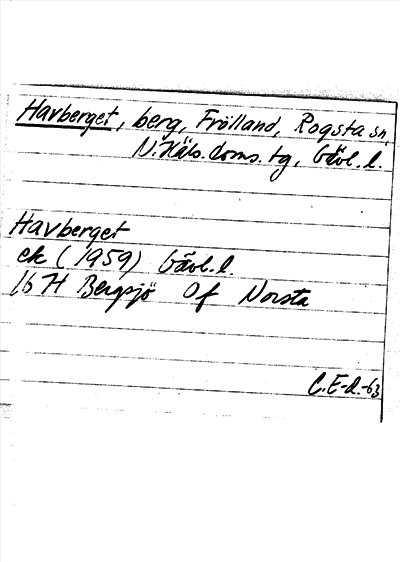 Havberget, berg, Frölland, Rogsta sn,
N. Häls. doms. tg, Gävl. l.
Havberget
ek (1959) Gävl. l.
16 H Bergsjö Of Norsta
C. E-d.-63